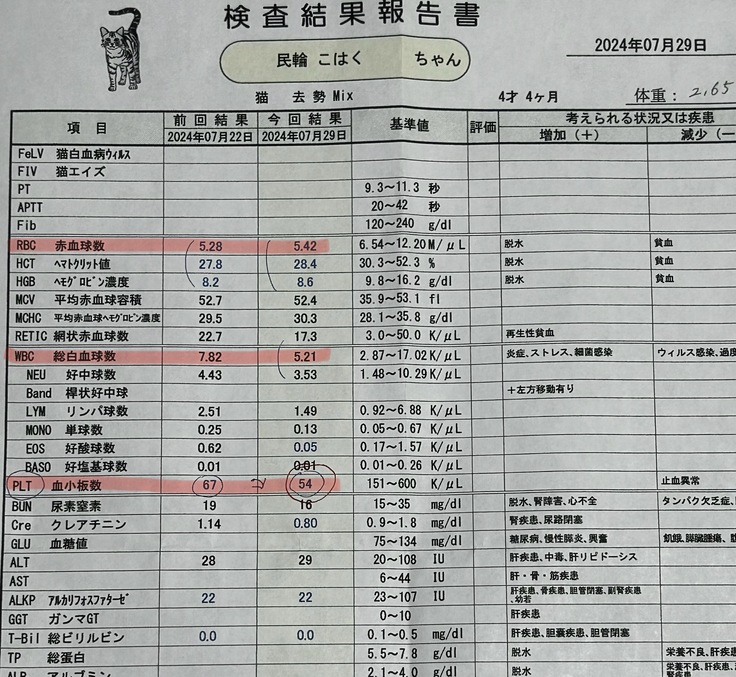 検査結果報告書
民輪 こはく ちゃん
2024年07月29日
猫 去勢 Mix 4才 4ヶ月 体重： 2.65
項目 前回結果 今回結果 基準値 評価 考えられる状況又は疾患
2024年07月22日 2024年07月29日 増加（＋） 減少（ー
FeLV 猫白血病ｳｲﾙｽ
FIV 猫エイズ
PT 9.3～11.3 秒
APTT 20～42 秒
Fib 120～240 g/dl
RBC 赤血球数 5.28 5.42 6.54～12.20 M/μL 脱水 貧血
HCT ﾍﾏﾄｸﾘｯﾄ値 27.8 28.4 30.3～52.3 % 脱水 貧血
HGB ﾍﾓｸﾞﾛﾋﾞﾝ濃度 8.2 8.6 9.8～16.2 g/dl 脱水 貧血
MCV 平均赤血球容積 52.7 52.4 35.9～53.1 fl
MCHC 平均赤血球ﾍﾓｸﾞﾛﾋﾞﾝ濃度 29.5 30.3 28.1～35.8 g/dl
RETIC 網状赤血球数 22.7 17.3 3.0～50.0 K/μL 再生性貧血
WBC 総白血球数 7.82 5.21 2.87～17.02 K/μL 炎症、ストレス、細菌感染 ウィルス感染、過度
NEU 好中球数 4.43 3.53 1.48～10.29 K/μL
Band 桿状好中球 ＋左方移動有り
LYM リンパ球数 2.51 1.49 0.92～6.88 K/μL
MONO 単球数 0.25 0.13 0.05～0.67 K/μL
EOS 好酸球数 0.62 0.05 0.17～1.57 K/μL
BASO 好塩基球数 0.01 0.01 0.01～0.26 K/μL
PLT 血小板数 67 54 151～600 K/μL 止血異常
BUN 尿素窒素 19 16 15～35 mg/dl 脱水、腎障害、心不全 タンパク欠乏症、
Cre クレアチニン 1.14 0.80 0.9～1.8 mg/dl 腎疾患、尿路閉塞
GLU 血糖値 75～134 mg/dl 糖尿病、慢性膵炎、興奮 飢餓、膵臓腫瘍、
ALT 28 29 20～108 IU 肝疾患、中毒、肝リピドーシス
AST 6～44 IU 肝・骨・筋疾患
ALKP ｱﾙｶﾘﾌｫｽﾌｧﾀｰｾﾞ 22 22 23～107 IU 肝疾患、骨疾患、胆管閉塞、副腎疾患
、幼若
GGT ガンマGT 0～10 肝疾患
T-Bil 総ビリルビン 0.0 0.0 0.1～0.5 mg/dl 肝疾患、胆嚢疾患、胆管閉塞
TP 総蛋白 5.5～7.8 g/dl 脱水 栄養不良、肝疾患
ALB アルブミン 2.1～4.0 g/dl 脱水 栄養不良、肝疾患、
腎疾患